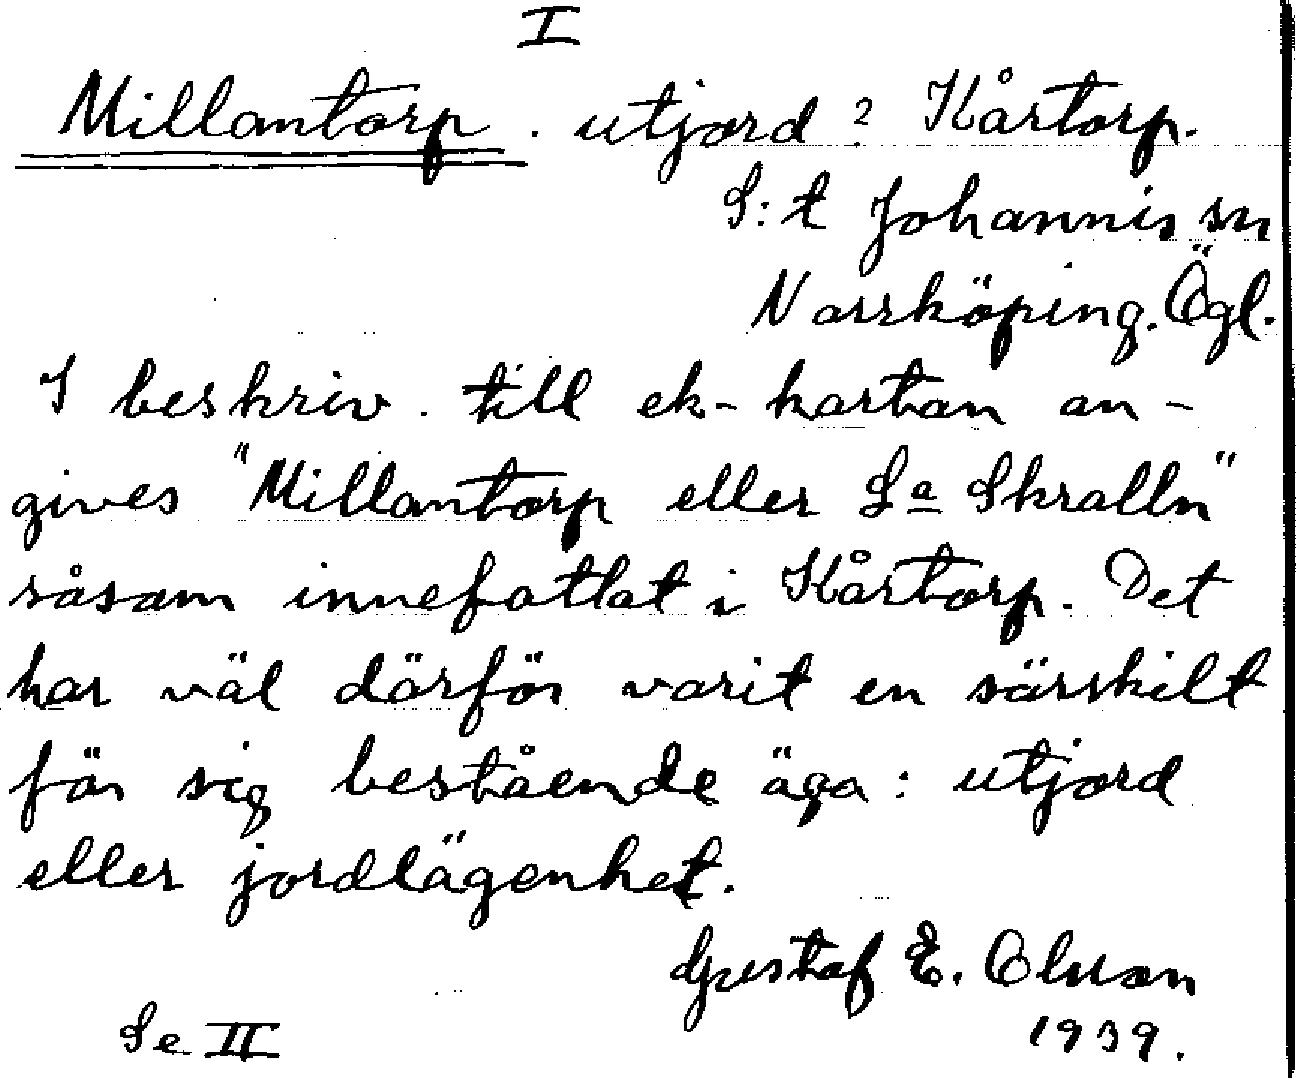 I
Millantorp. utjord? Kårtorp.
S:t Johannis sn
Norrköping. Ögl.
I beskriv. till ek-kartan an-
gives "Millantorp eller La Skralln"
såsom innefattat i Kårtorp. Det
har väl därför varit en särskilt
för sig bestående äga: utjord
eller jordlägenhet.
Gustaf E. Olsson
Se II 1939.